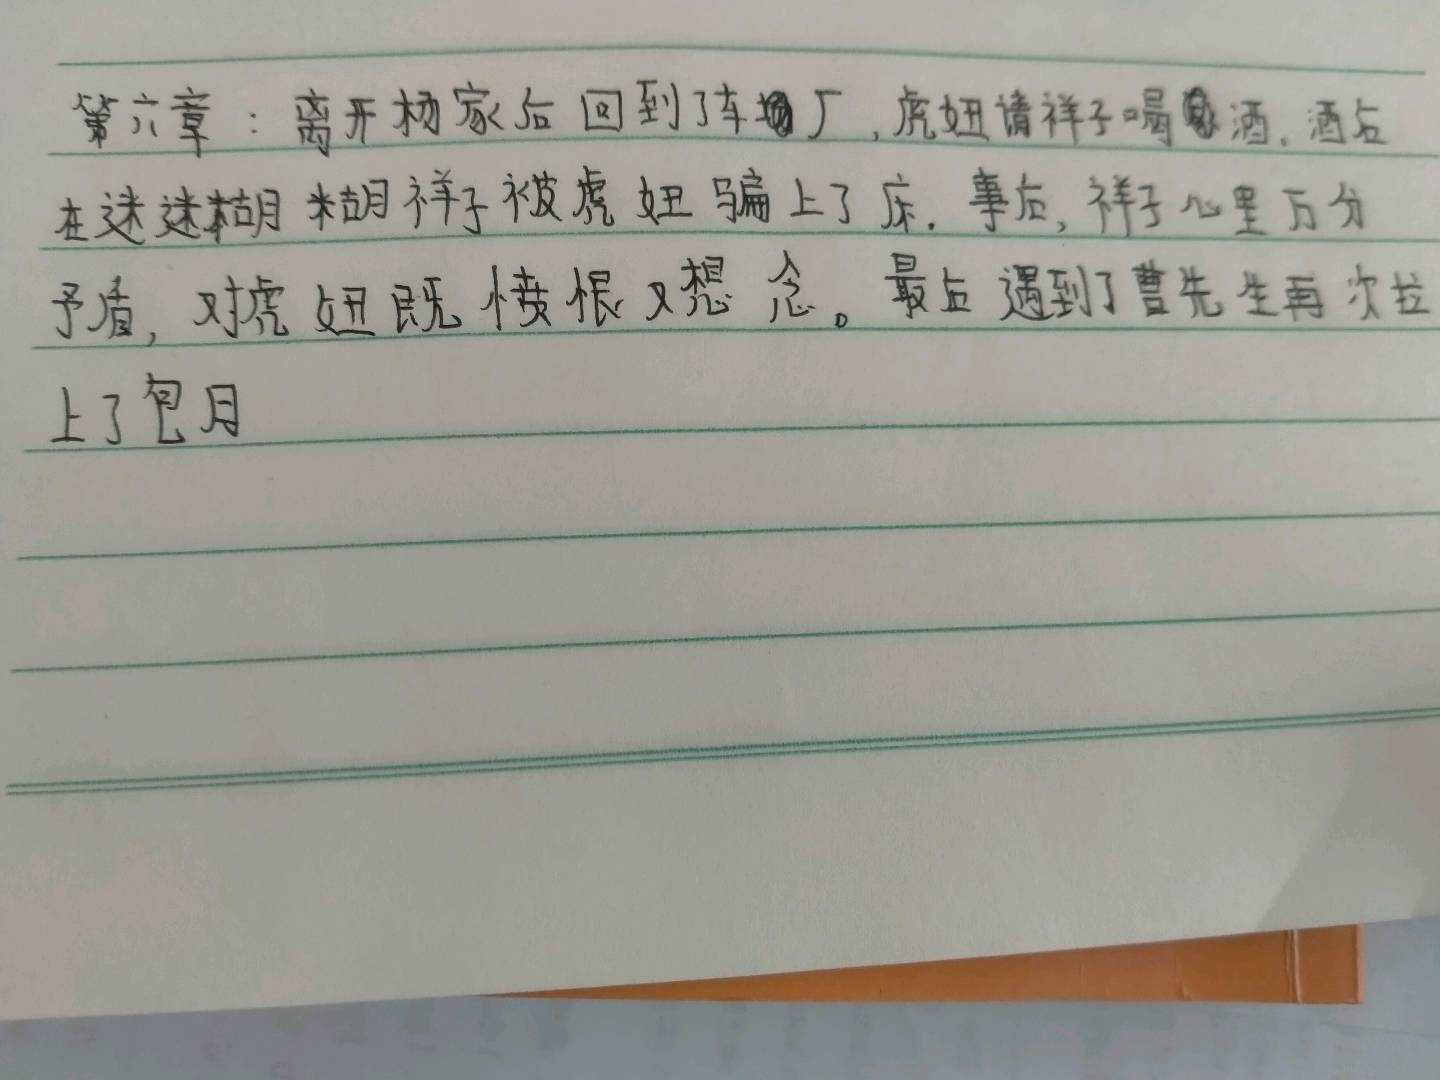 第六章：离开杨家后回到了车厂,虎妞请祥子喝酒,酒后
在迷迷糊糊祥子被虎妞骗上了床.事后,祥子心里万分
矛盾,对虎妞既愤恨又想念。最后遇到了曹先生再次拉
上了包月